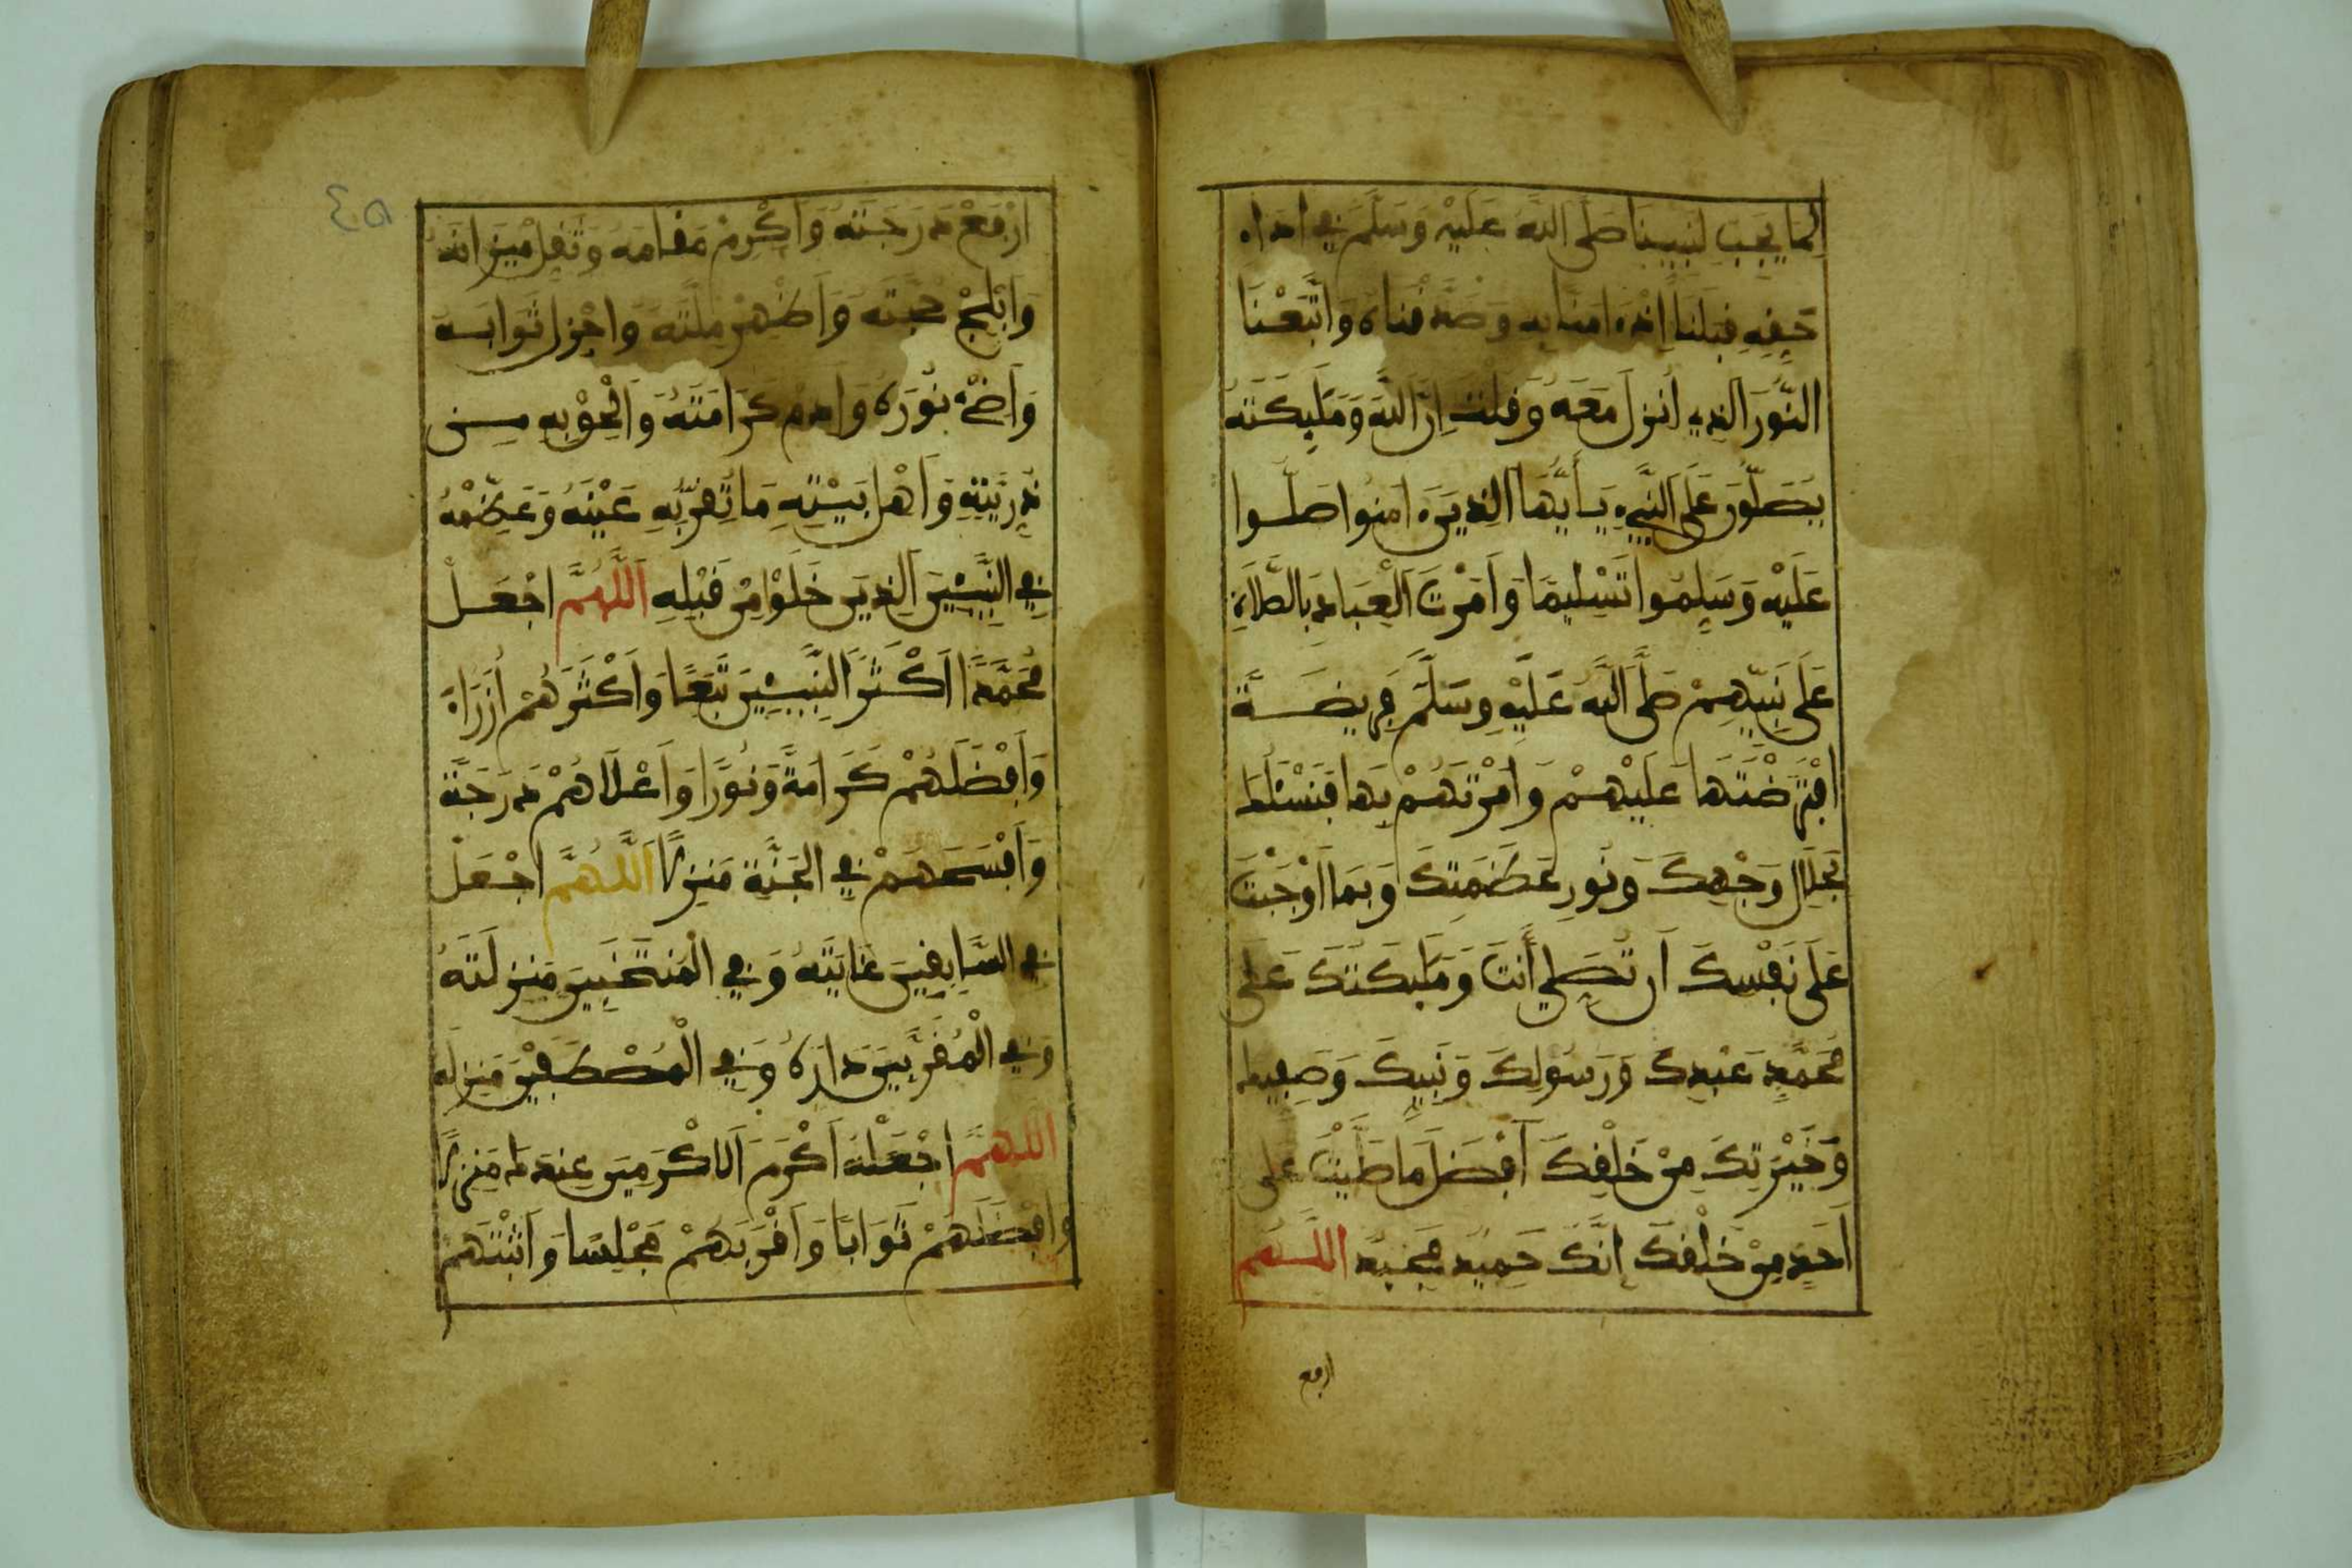 لِمَا يَجِبُ لِنَبِيِّنَا صَلَّى اللَّهُ عَلَيْهِ وَسَلَّمَ فِي أَدَاءِ
حَقِّهِ قِبَلَنَا إِذْ آمَنَّا بِهِ وَصَدَّقْنَاهُ وَاتَّبَعْنَا
النُّورَ الَّذِي أُنْزِلَ مَعَهُ وَقُلْتَ إِنَّ اللَّهَ وَمَلَائِكَتَهُ
يُصَلُّونَ عَلَى النَّبِيءِ يَأَيُّهَا الَّذِينَ ءَامَنُوا صَلُّوا
عَلَيْهِ وَسَلِّمُوا تَسْلِيمًا وَأَمَرْتَ الْعِبَادَ بِالصَّلَاةِ
عَلَى نَبِيِّهِمْ صَلَّى اللَّهُ عَلَيْهِ وَسَلَّمَ فَرِيضَةً
افْتَرَضْتَهَا عَلَيْهِمْ وَأَمَرْتَهُمْ بِهَا فَنَسْئَلُكَ
بِجَلَالِ وَجْهِكَ وَنُورِ عَظَمَتِكَ وَبِمَا أَوْجَبْتَ
عَلَى نَفْسِكَ أَن تُصَلِّيَ أَنتَ وَمَلَائِكَتُكَ عَلَى
مُحَمَّدٍ عَبْدِكَ وَرَسُولِكَ وَنَبِيِّكَ وَصَفِيِّكَ
وَخِيْرَتِكَ مِنْ خَلْقِكَ أَفْضَلَ مَا صَلَّيْتَ عَلَى
أَحَدٍ مِنْ خَلْقِكَ إِنَّكَ حَمِيدٌ مَجِيدٌ اللَّهُمَّ
ارفع
٤٥
ارْفَعْ دَرَجَتَهُ وَأَكْرِمْ مَقَامَهُ وَثَقِّلْ مِيزَانَهُ
وَأَبْلِجْ حُجَّتَهُ وَأَظْهِرْ مِلَّتَهُ وَأَجْزِلْ ثَوَابَهُ
وَأَضِئْ نُورَهُ وَأَدِمْ كَرَامَتَهُ وَأَلْحِقْ بِهِ مِن
ذُرِّيَّتِهِ وَأَهْلِ بَيْتِهِ مَا تُقِرُّ بِهِ عَيْنَهُ وَعَظِّمْهُ
فِي النَّبِيئِينَ الَّذِينَ خَلَوْا مِن قَبْلِهِ اللَّهُمَّ اجْعَلْ
مُحَمَّدًا أَكْثَرَ النَّبِيئِينَ تَبَعًا وَأَكْثَرَهُمْ أُزَرَاءَ
وَأَفْضَلَهُمْ كَرَامَةً وَنُورًا وَأَعْلَاهُمْ دَرَجَةً
وَأَفْسَحَهُمْ فِي الْجَنَّةِ مَنزِلًا اللَّهُمَّ اجْعَلْ
فِي السَّابِقِينَ غَايَتَهُ وَفِي الْمُنتَخَبِينَ مَنزِلَتَهُ
وَفِي الْمُقَرَّبِينَ دَارَهُ وَفِي الْمُصْطَفَيْنَ مَنزِلَهُ
اللَّهُمَّ اجْعَلْهُ أَكْرَمَ الْأَكْرَمِينَ عِندَكَ مَنزِلًا
وَأَفْضَلَهُمْ ثَوَابًا وَأَقْرَبَهُمْ مَجْلِسًا وَأَثْبَتَهُمْ